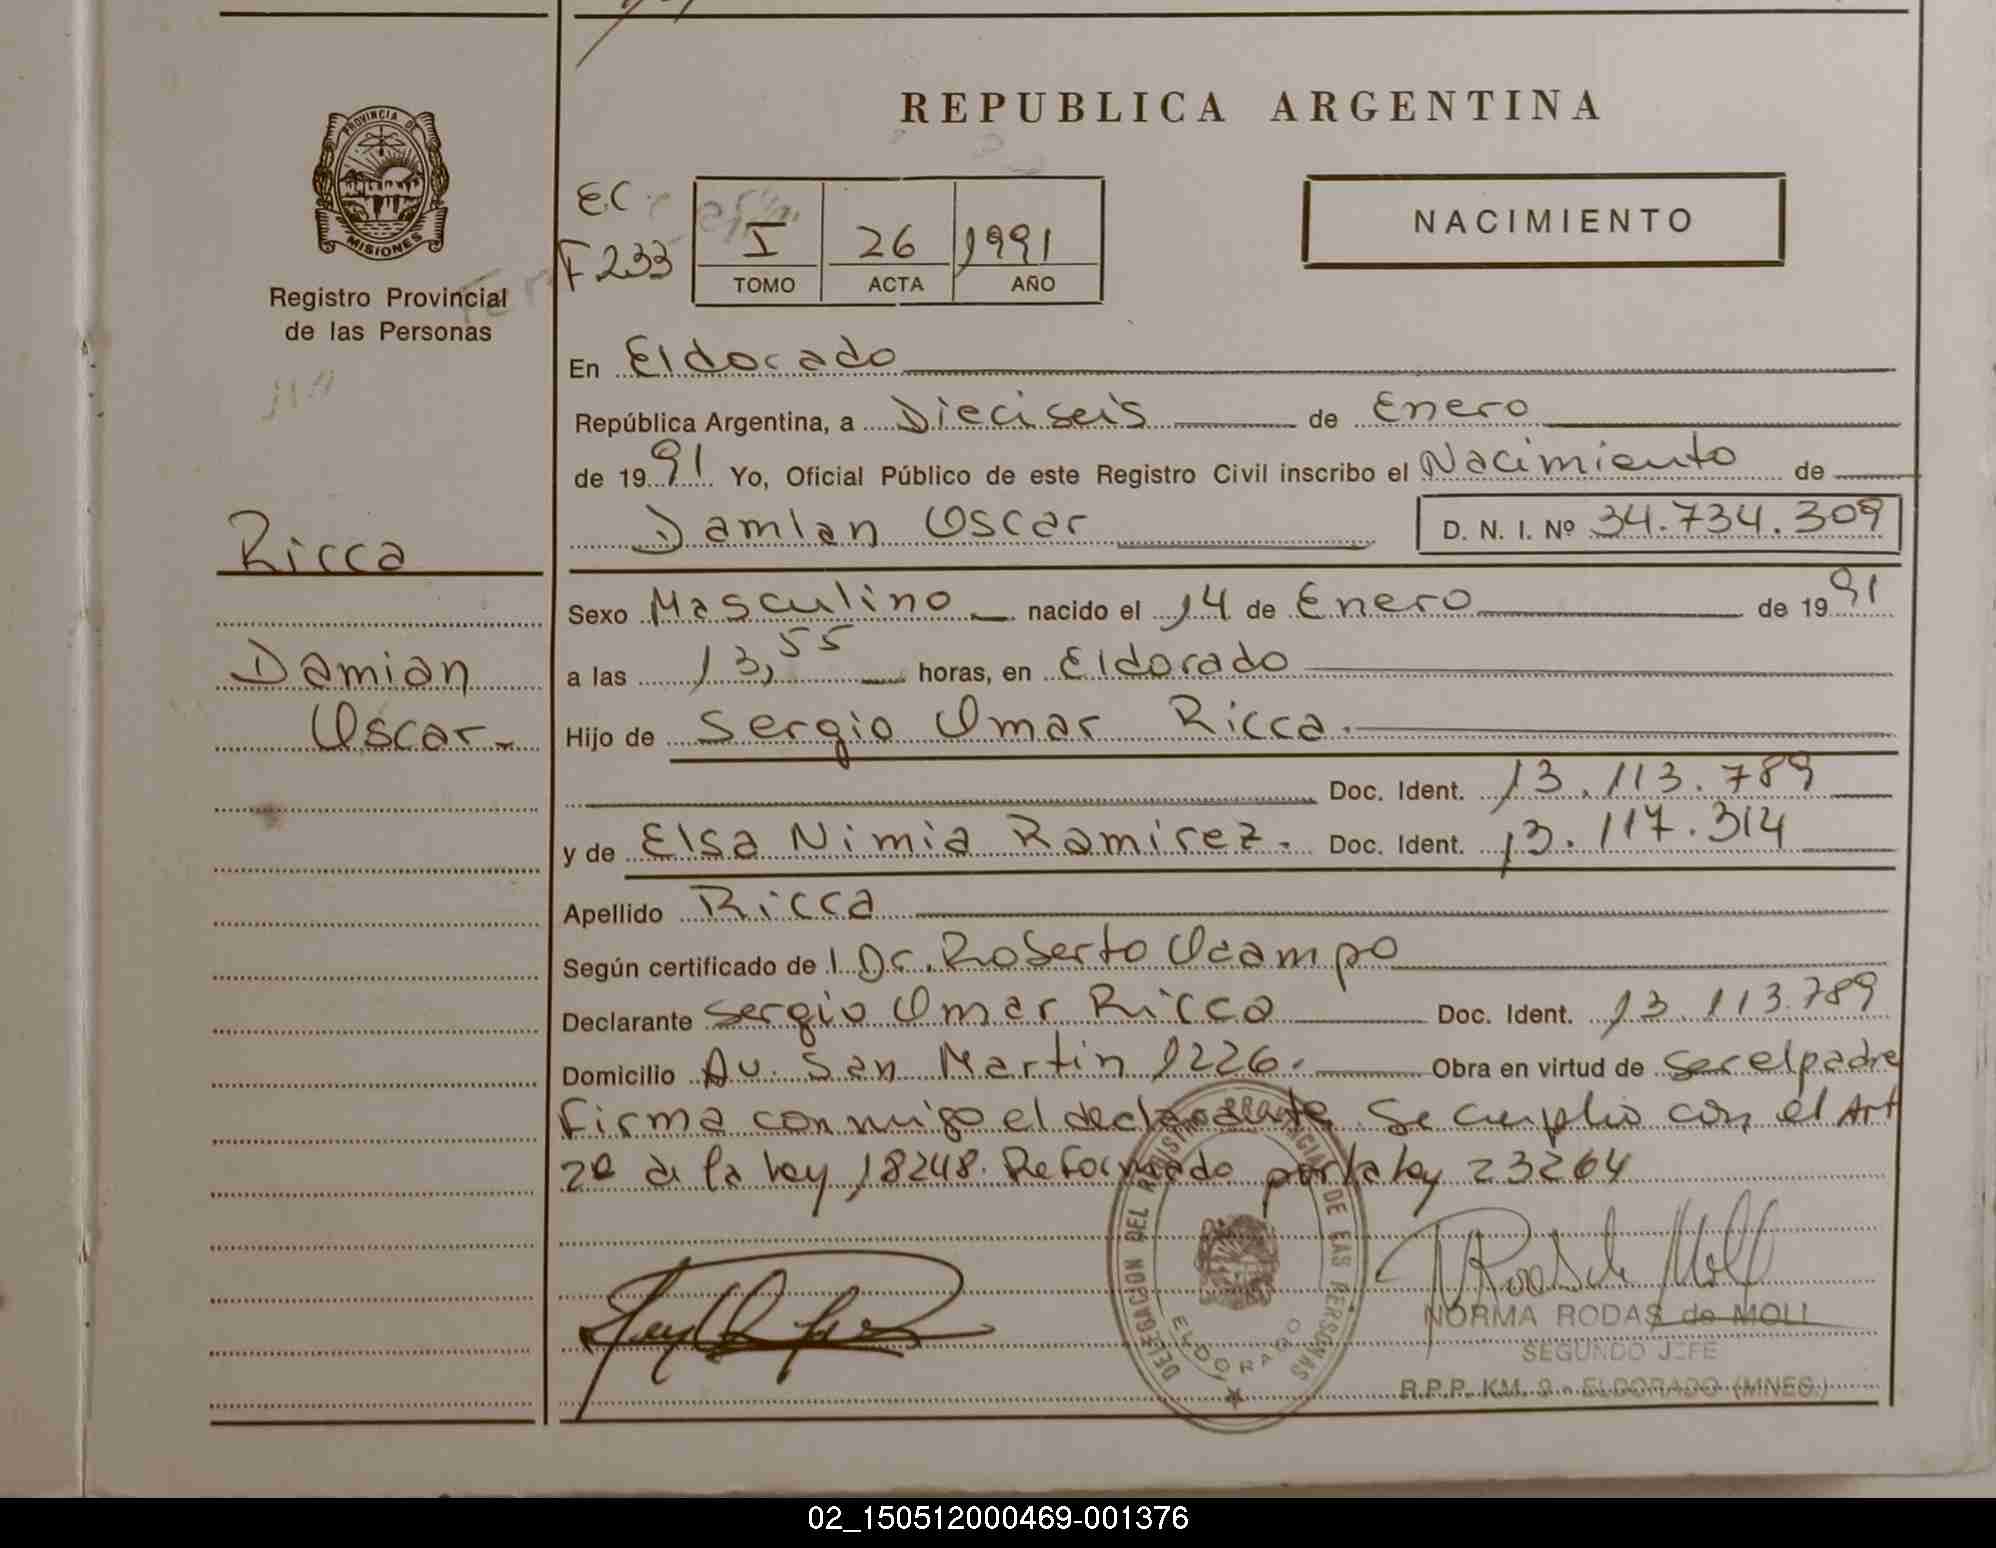 REPUBLICA ARGENTINA
PROVINCIA DE
MISIONES
Registro Provincial
de las Personas
EC
F 233
I 26 1991
TOMO ACTA AÑO
NACIMIENTO
En Eldorado
República Argentina, a Dieciseis de Enero
de 1991 Yo, Oficial Público de este Registro Civil inscribo el Nacimiento de
Damian Oscar D. N. I. Nº 34.734.309
Ricca
Sexo Masculino nacido el 14 de Enero de 1991
Damian
a las 13,55 horas, en Eldorado
Oscar.-
Hijo de Sergio Omar Ricca.
Doc. Ident. 13.113.789
y de Elsa Nimia Ramirez. Doc. Ident. 13.117.314
Apellido Ricca
Según certificado de l Dr. Roberto Ocampo
Declarante Sergio Omar Ricca Doc. Ident. 13.113.789
Domicilio Av. San Martin 1226. Obra en virtud de ser el padre
Firma conmigo el declarante. Se cumplio con el Art
2º de la ley 18248. Reformado por la ley 23264
DELEGACION DEL REGISTRO PROVINCIAL DE LAS PERSONAS
ELDORADO
NORMA RODAS de MOLL
SEGUNDO JEFE
R.P.P. KM. 9 - ELDORADO (MNES.)
02_150512000469-001376